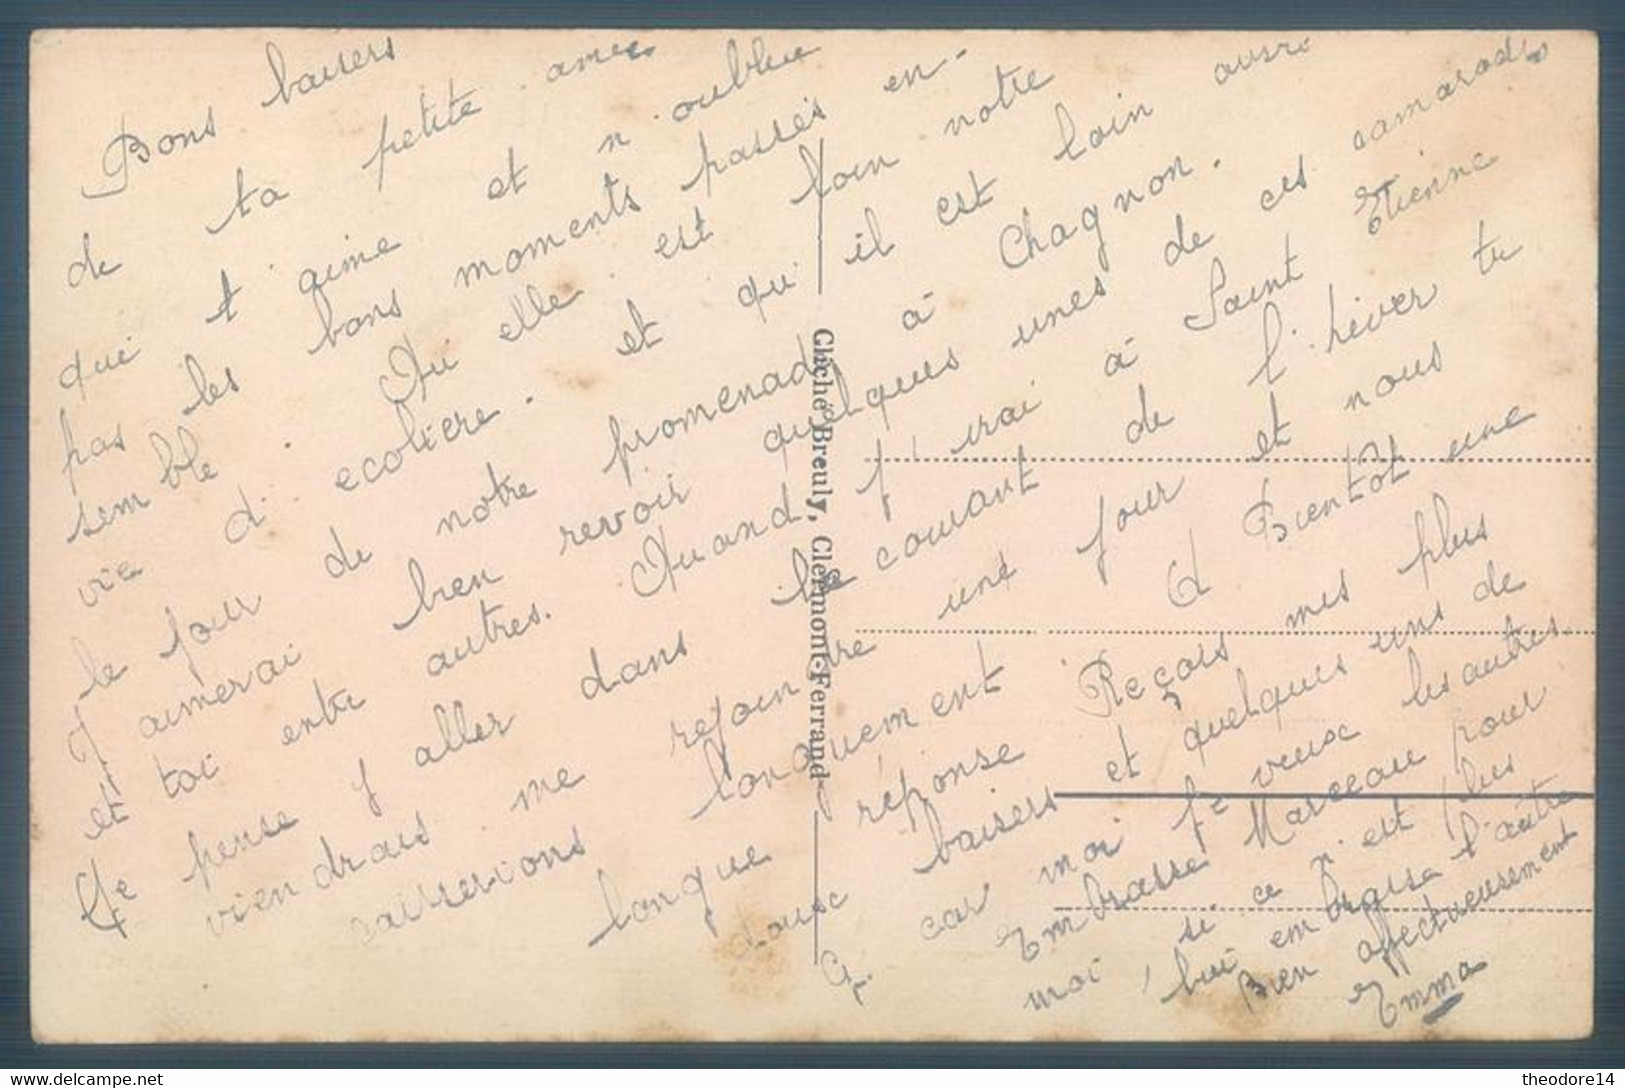 Bons baisers
de ta petite amie
qui t'aime et n'oublie
pas les bons moments passés en-
semble. Qu'elle est loin notre
vie d'ecolière. et qu'il est loin aussi
le jour de notre promenade à Chagnon.
J'aimerai bien revoir quelques unes de ces camarades
et toi entre autres. Quand j'irai à Saint Etienne
Je pense y aller dans le courant de l'hiver tu
viendrais me rejoindre une jour et nous
causerions longuement A Bientôt une
longue réponse Reçois mes plus
doux baisers et quelques uns de
car moi je veux les autres.
Embrasse Marceau pour
moi, si ce n'est plus
lui embrasse l'autre
Bien affectueusement
Emma
Cliché Breuly, Clermont-Ferrand
theodore14